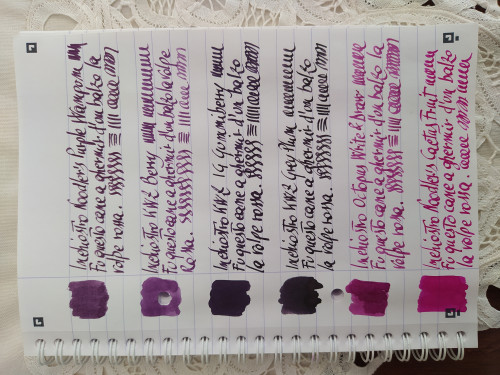 Inchiostro Noodlers Purple Wampum
Fu questo cane a ghermir d'un balzo la
volpe rossa.
Inchiostro KWZ Berry
Fu questo cane a ghermir d'un balzo la volpe
Rossa.
Inchiostro KWZ I.G Gummiberry
Fu questo cane a ghermir d'un balzo
la volpe rossa.
Inchiostro KWZ Grey Plum
Fu questo cane a ghermir d'un balzo
la volpe rossa.
Inchiostro Octopus Write & Draw
Fu questo cane a ghermir d'un balzo la
volpe rossa.
Inchiostro Noodlers Cactus Fruit
Fu questo cane a ghermir d'un balzo
la volpe rossa.